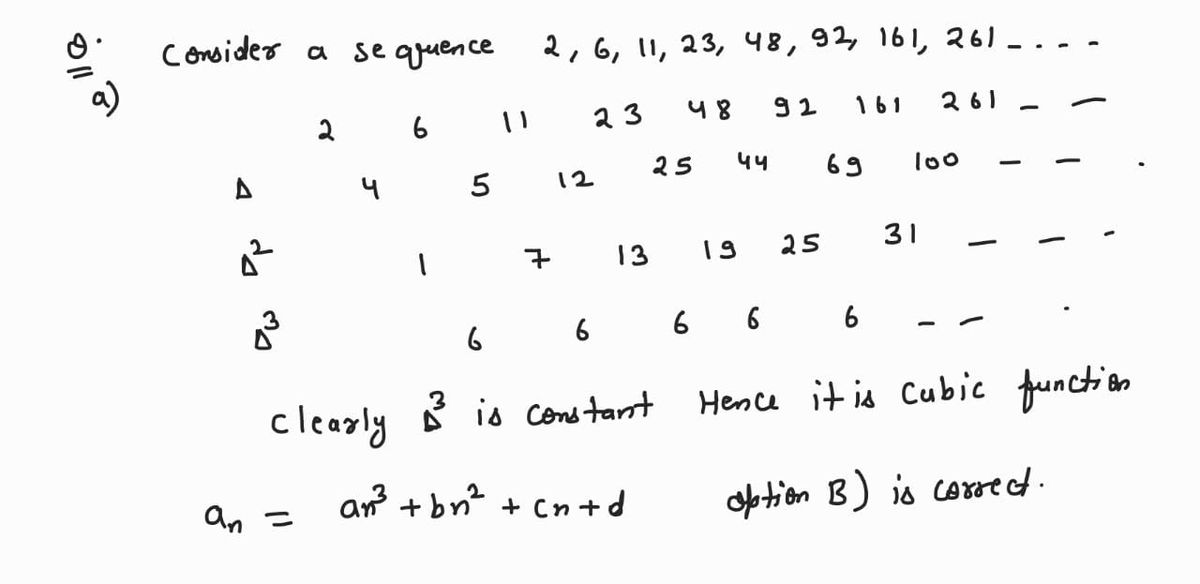 Q. Consider a sequence 2, 6, 11, 23, 48, 92, 161, 261 - . . - -
a)
2 6 11 23 48 92 161 261 - -
Δ 4 5 12 25 44 69 100 - - .
Δ² 1 7 13 19 25 31 - - -
Δ³ 6 6 6 6 6 - - .
Clearly Δ³ is constant Hence it is Cubic function
aₙ = an³ + bn² + cn + d option B) is correct.